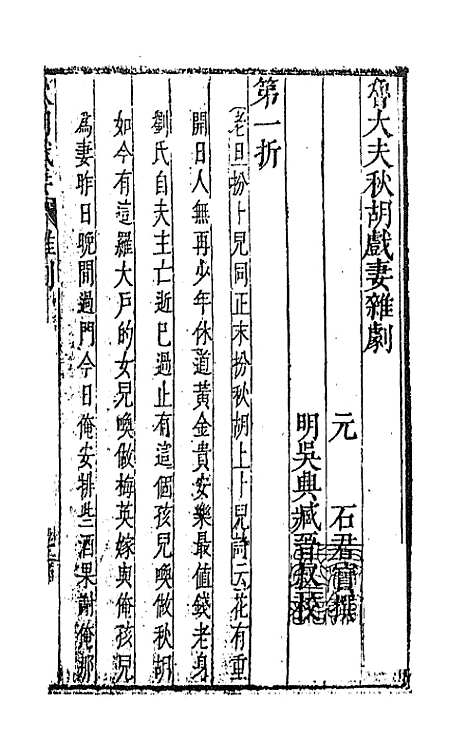 魯大夫秋胡戲妻雜劇
元　石君寶撰
明吳興臧晉叔校
第一折
老旦扮卜兒同正末扮秋胡上卜兒詩云花有重
開日人無再少年休道黃金貴安樂最值錢老身
劉氏自夫主亡逝已過止有這個孩兒喚做秋胡
如今有這羅大戶的女兒喚做梅英嫁與俺孩兒
為妻昨日晚間過門今日俺安排些酒果謝俺那